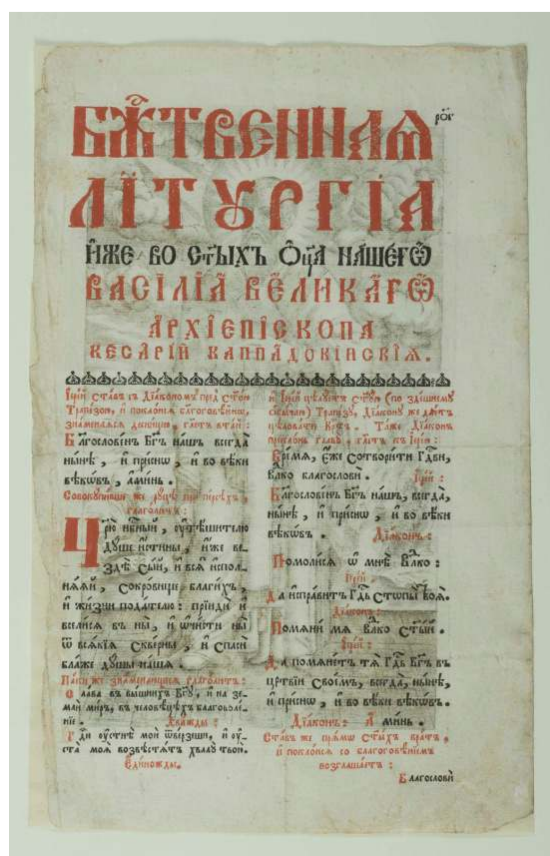 Бжⷭ҇твеннаѧ
рог
Літꙋргіа
и҆́же во ст҃ы́хъ Ѻ҆ц҃а̀ на́шегѡ
Васі́лїа Вели́кагѡ
А҆рхїепі́скопа
Кесарі́и Каппадокі́нскїѧ.
І҆ере́й ста́въ съ Дїа́кономъ пред̾ ст҃о́ю
Трапе́зою, и҆ поклони́сѧ благоговѣ́йнѡ,
зна́менаѧсѧ гл҃етъ вта́й:
Благослове́нъ Бг҃ъ на́шъ всегда̀
ны́нѣ, и҆ при́снѡ, и҆ во вѣ́ки
вѣкѡ́въ, а҆ми́нь.
Совокꙋпи́вши же рꙋ́цѣ при пе́рсѣхъ,
глаго́лютъ:
Цр҃ю̀ нбⷭ҇ный, оу҆тѣ́шителю
дꙋ́ше и҆́стины, и҆́же ве-
здѣ̀ сы́й, и҆ всѧ̑ и҆сполѧ-
нѧ́ѧй, сокро́вище благи́хъ,
и҆ жи́зни пода́телю: прїидѝ и҆
всели́сѧ въ ны̀, и҆ ѡ҆чи́сти ны̀
ѿ всѧ́кїѧ скве́рны, и҆ спасѝ
бла́же дꙋ́шы на́шѧ.
Па́ки же зна́менающесѧ глаго́лютъ:
Сла́ва въ вы́шнихъ Бг҃ꙋ, и҆ на зе-
млѝ ми́ръ, въ человѣ́цѣхъ благоволе́-
нїе. Два́жды:
Гдⷭ҇и оу҆стнѣ̀ моѝ ѿве́рзеши, и҆ оу҆-
ста̀ моѧ̑ возвѣстѧ́тъ хвалꙋ̀ твою̀.
Е҆ди́ножды.
и҆ І҆ере́й цѣлꙋ́етъ ст҃ꙋ́ю (по здѣ́шнемꙋ
Трапе́зꙋ, Дїа́конꙋ же дае́тъ
цѣлова́ти Кр҃тъ. Та́же Дїа́конъ
прикло́нь главꙋ̀, гл҃етъ къ І҆ере́ю:
Вре́мѧ, є҆́же сотвори́ти Гдⷭ҇ви,
влⷣко благословѝ. І҆ере́й:
Благослове́нъ Бг҃ъ на́шъ, всегда̀,
ны́нѣ, и҆ при́снѡ, и҆ во вѣ́ки
вѣкѡ́въ. Дїа́конъ:
Помоли́сѧ ѡ҆ мнѣ̀ Влⷣко:
І҆ере́й:
Да и҆спра́витъ Гдⷭ҇ь стѡпы̀ твоѧ̑.
Дїа́конъ:
Помѧнѝ мѧ̀ Влⷣко ст҃ы́й.
І҆ере́й:
Да помѧне́тъ тѧ̀ Гдⷭ҇ь Бг҃ъ въ
црⷭ҇твїи Свое́мъ, всегда̀, ны́нѣ,
и҆ при́снѡ, и҆ во вѣ́ки вѣкѡ́въ.
Дїа́конъ: А҆ми́нь.
Ста́въ же прѧ́мѡ ст҃ы́хъ вра́тъ,
и҆ поклони́сѧ со благоговѣ́нїемъ
возглаша́етъ:
Благословѝ